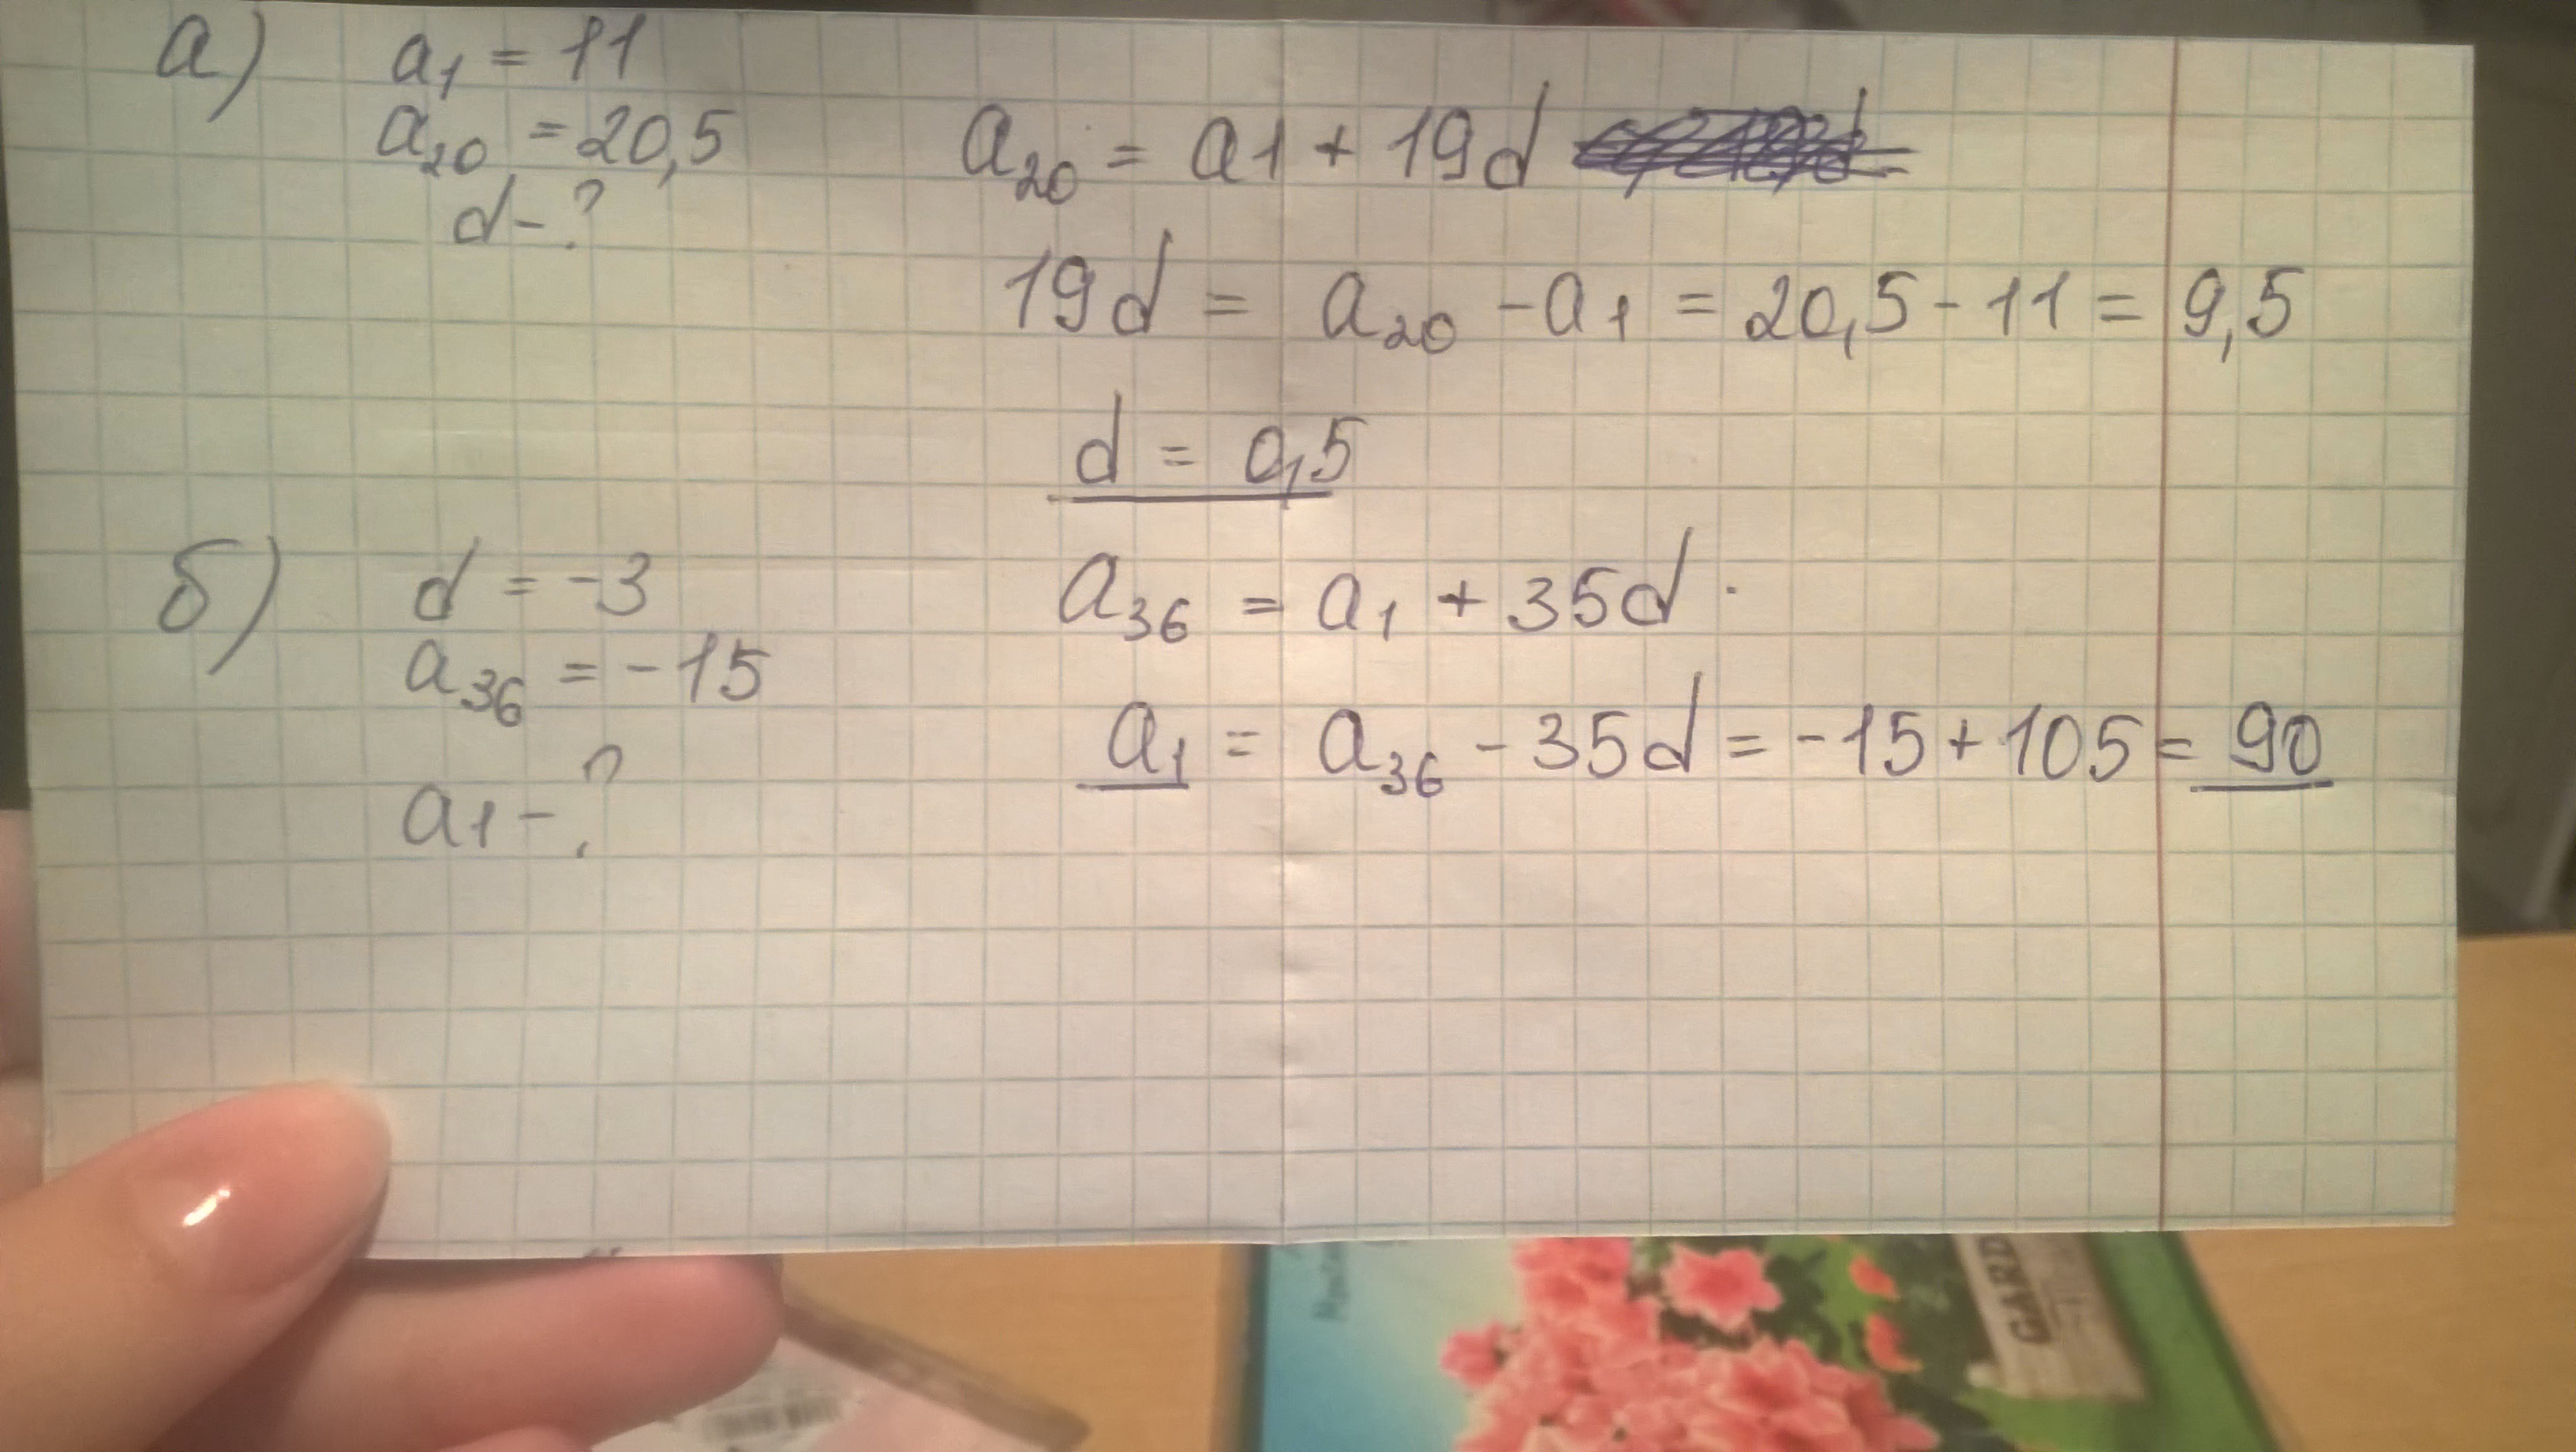 а) a₁ = 11
a₂₀ = 20,5
d - ?
a₂₀ = a1 + 19d
19d = a₂₀ - a₁ = 20,5 - 11 = 9,5
d = 0,5
б) d = -3
a₃₆ = -15
a₁ - ?
a₃₆ = a₁ + 35d .
a₁ = a₃₆ - 35d = -15 + 105 = 90
GARD